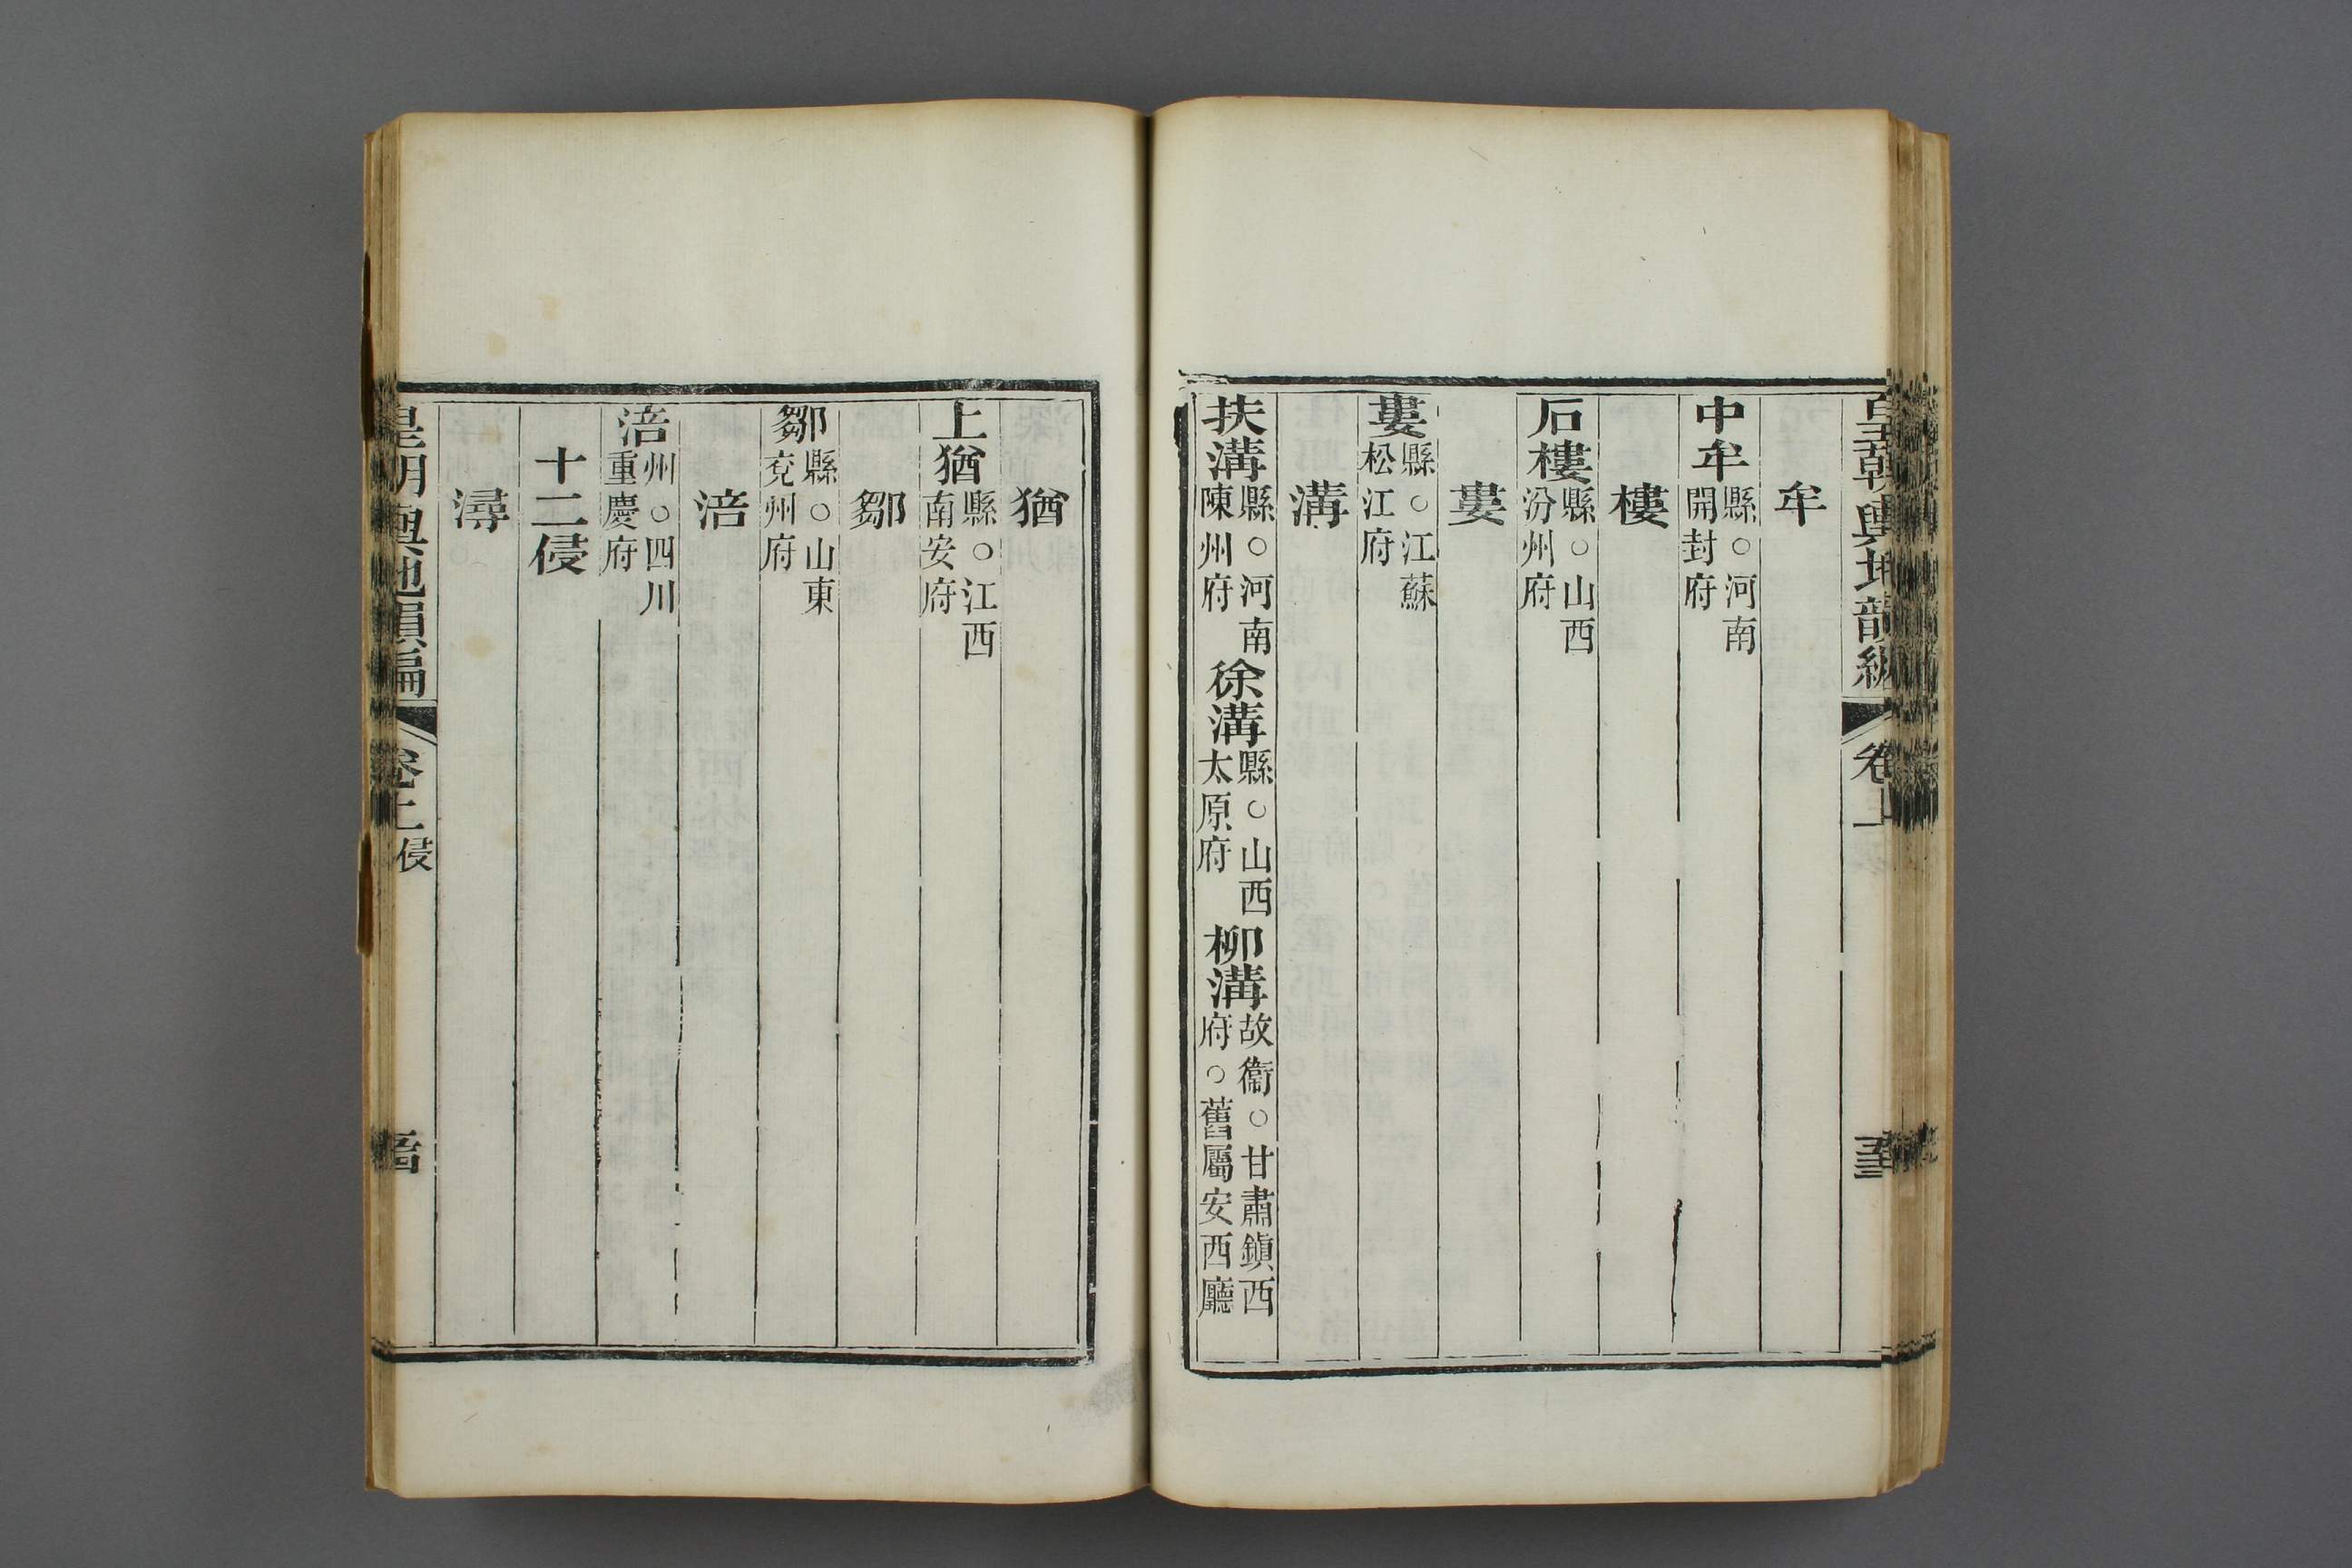 皇朝輿地韻編
卷上
牟
中牟縣○河南開封府
樓
石樓縣○山西汾州府
婁
婁縣○江蘇松江府
溝
扶溝縣○河南陳州府 徐溝縣○山西太原府 柳溝故衞○甘肅鎮西府○舊屬安西廳
猶
上猶縣○江西南安府
鄒
鄒縣○山東兗州府
涪
涪州○四川重慶府
十二侵
潯
皇朝輿地韻編
卷上 侵